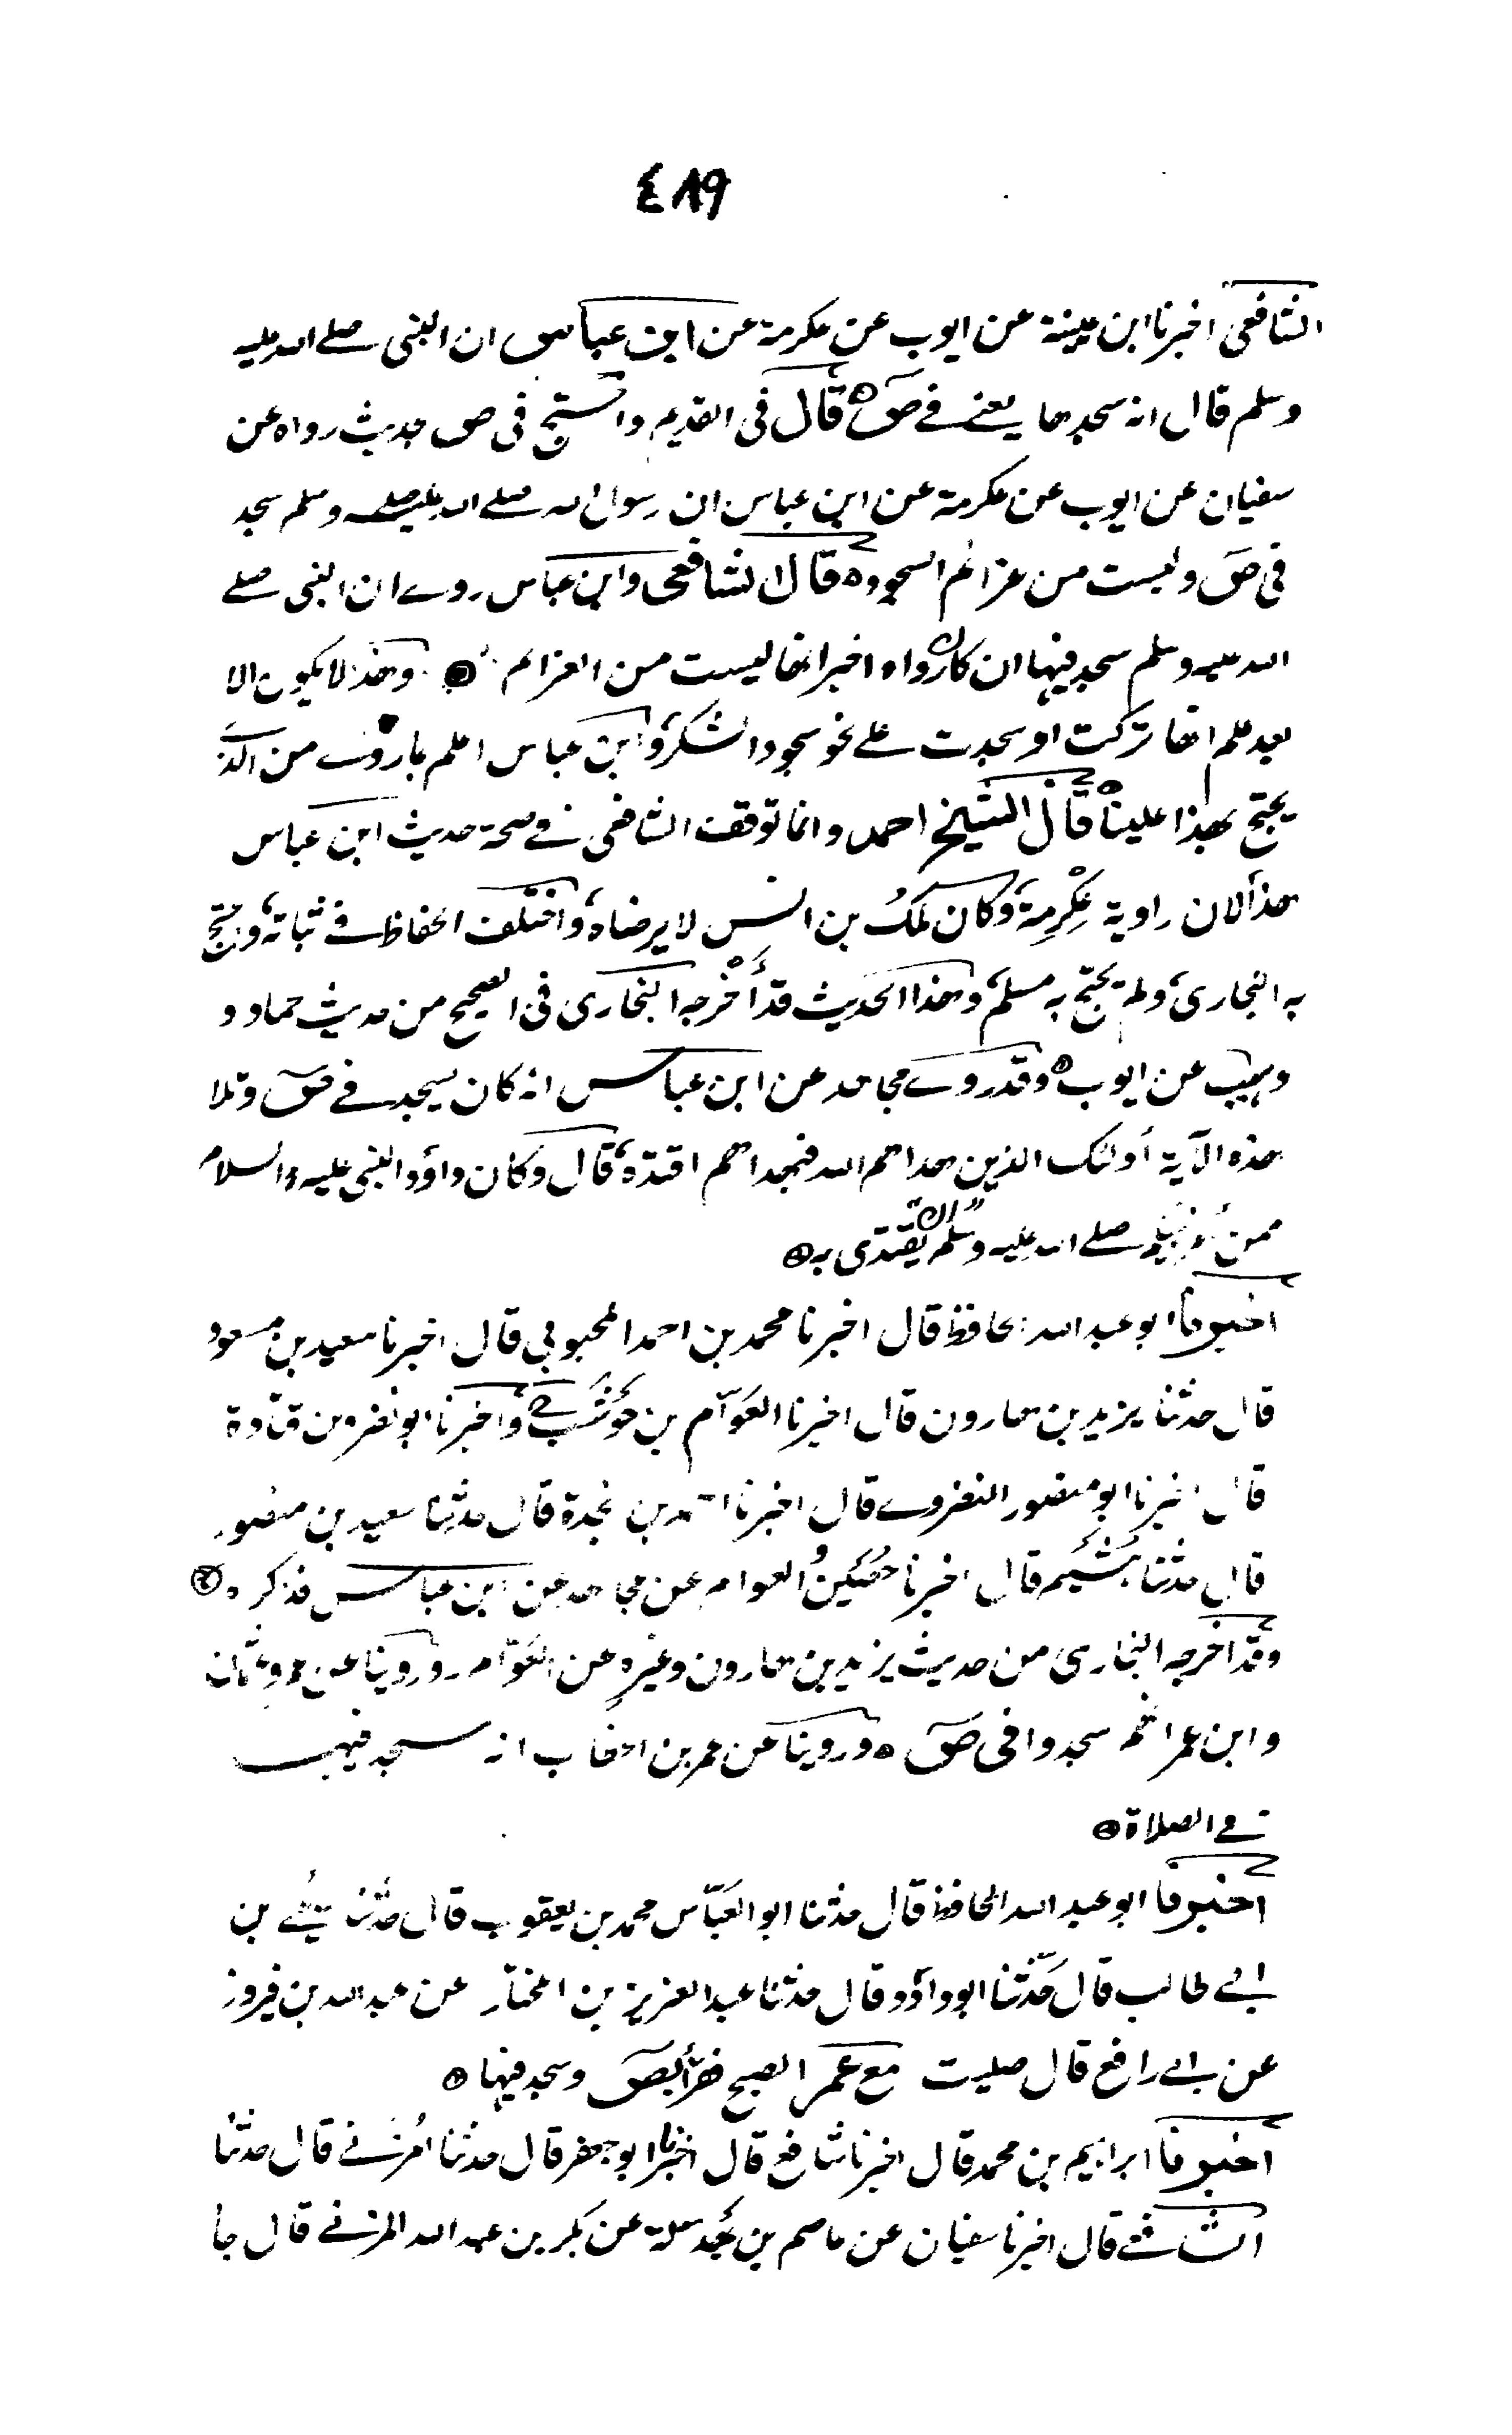 ٤٨٩
الشافعى اخبرنا ابن عيينة عن ايوب عن عكرمة عن ابن عباس ان النبى صلے الله عليه
وسلم قال انه سجدها يعنے فے صٓ ه قال فى القديم و فى ص حديث رواه عن
سفيان عن ايوب عن عكرمة عن ابن عباس ان رسول الله صلے الله عليه وسلم سجد
فى صٓ وليست من عزائم السجود ه قال الشافعى وابن عباس روے ان النبى صلے
الله عليه وسلم سجد فيها ان كان رواه اخبر انها ليست من العزائم ه وهذا لا يكون الا
بعد علم انها تركت او سجدت علے نحو سجود الشكر وابن عباس اعلم بما روے من الذى
يحتج بهذا علينا ه قال الشيخ احمد وانما توقف الشافعى فے صحة حديث ابن عباس
هذا لان راويه عِكْرِمة وكان ملك بن انس لا يرضاه واختلف الحفاظ فے ثباته ويحتج
به البخارى ولم يحتج به مسلم وهذا الحديث قد أخْرجه البخارى فى الصحيح من حديث حماد و
وهيب عن ايوب ه وقد روے مجاهد عن ابن عباس انه كان يسجد فے صٓ وتلا
هذه الآية أولئك الذين هداهم الله فبهداهم اقتده قال وكان داؤد النبى عليه السلام
ممن أُمر نبيكم صلے الله عليه وسلم ان يقتدى به ه
اخبرنا ابو عبد الله الحافظ قال اخبرنا محمد بن احمد المحبوبي قال اخبرنا سعيد بن مسعود
قال حدثنا يزيد بن هارون قال اخبرنا العوّام بن حوشب ح واخبرنا ابو نصر بن قتادة
قال اخبرنا ابو منصور النضروے قال اخبرنا احمد بن نجدة قال حدثنا سعيد بن منصور
قال حدثنا هُشَيم قال اخبرنا حُصَينُ و العوام عن مجاهد عن ابن عباس فذكره ه
وقد اخرجه البخارى من حديث يزيد بن هارون وغيره عن العوّام وروينا عن عمر وعثمان
وابن عمر انهم سجدوا فى صٓ ه وروينا عن عمر بن الخطاب انه سجد فيها
فے الصلاة ه
اخبرنا ابو عبد الله الحافظ قال حدثنا ابو العبّاس محمد بن يعقوب قال حدثنا يحيے بن
ابے طالب قال حدّثنا ابو داؤد قال حدثنا عبد العزيز بن المختار عن عبد الله بن فيروز
عن ابے رافع قال صليت مع عمر الصبح فقرأ بصٓ وسجد فيها ه
اخبرنا ابراهيم بن محمد قال اخبرنا شافع قال اخبرنا ابو جعفر قال حدثنا المُزنے قال حدثنا
الشافعے قال اخبرنا سفيان عن عاصم بن بَهْدلة عن بكر بن عبد الله المزنے قال جا